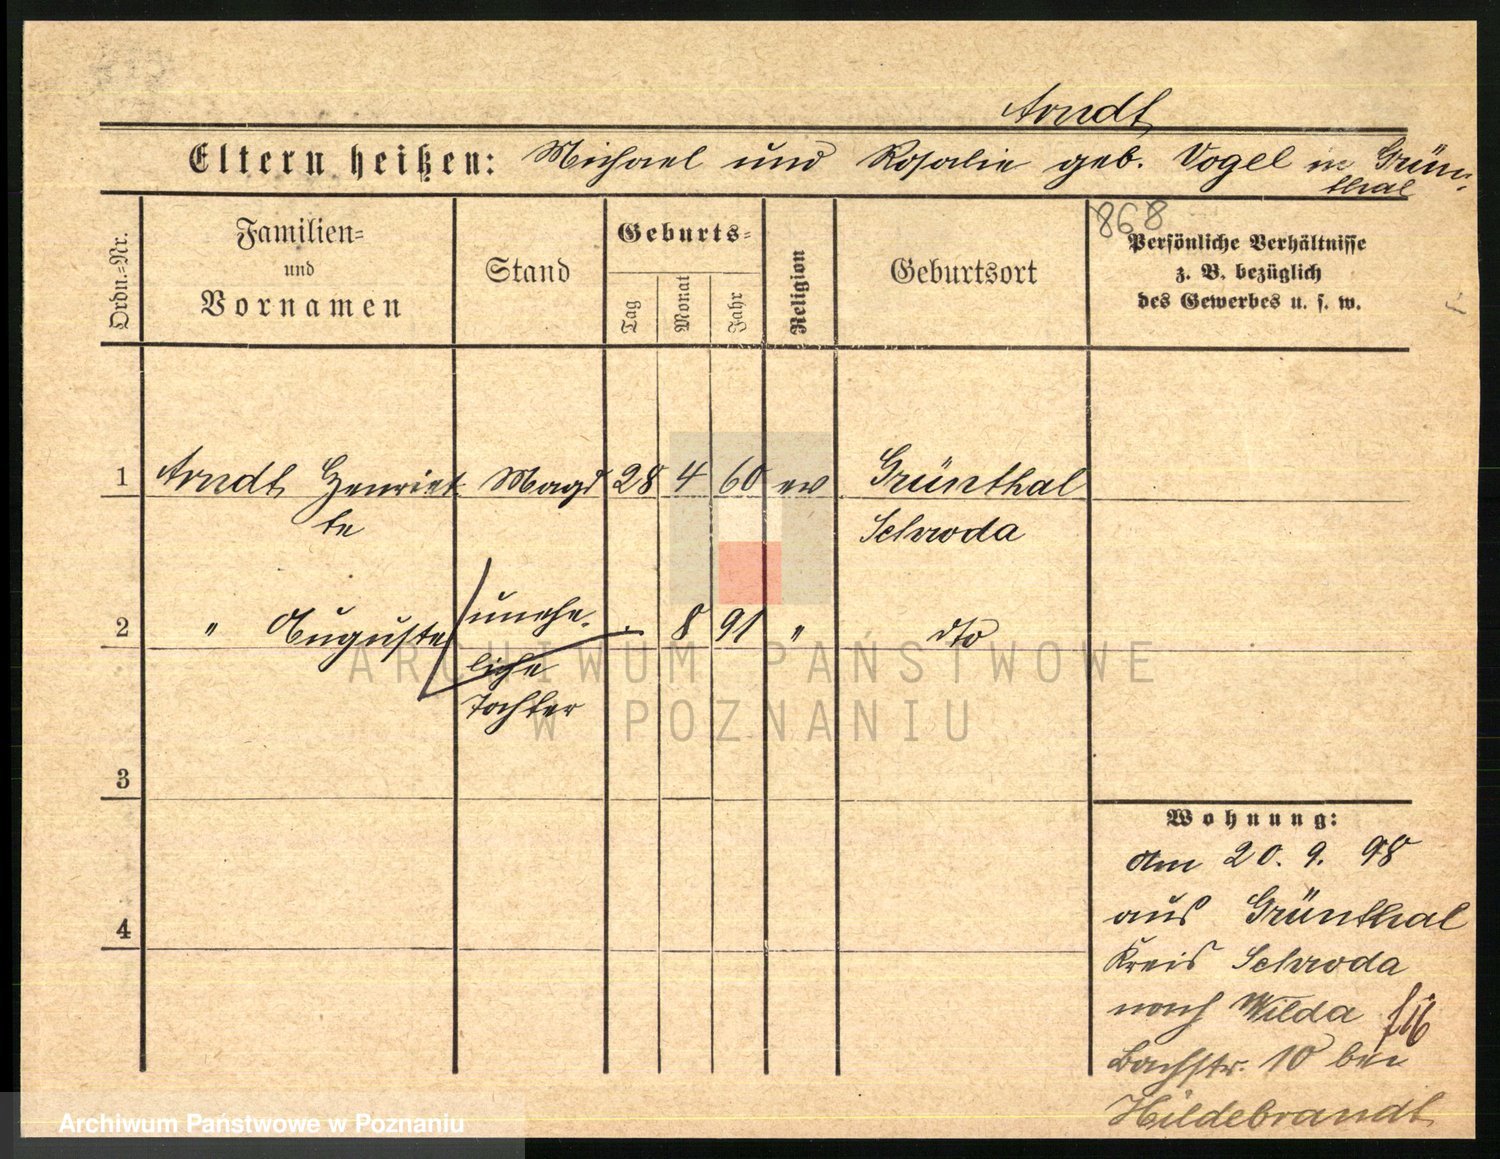 Arndt
Eltern heißen: Michael und Rosalie geb. Vogel in Grün-
thal
868
Ordn.=Nr.
Familien=
und
Vornamen
Stand
Geburts=
Tag
Monat
Jahr
Religion
Geburtsort
Persönliche Verhältnisse
z. B. bezüglich
des Gewerbes u. s. w.
1 Arndt Henriet- Magd 28 4 60 ev Grünthal
te Schroda
2 " Auguste unehe- . 8 91 " dto
liche
Tochter
3
4
Wohnung:
Am 20. 9. 98
aus Grünthal
Kreis Schroda
nach Wilda
Bachstr. 10 bei
Hildebrandt
ARCHIWUM PAŃSTWOWE
W POZNANIU
Archiwum Państwowe w Poznaniu